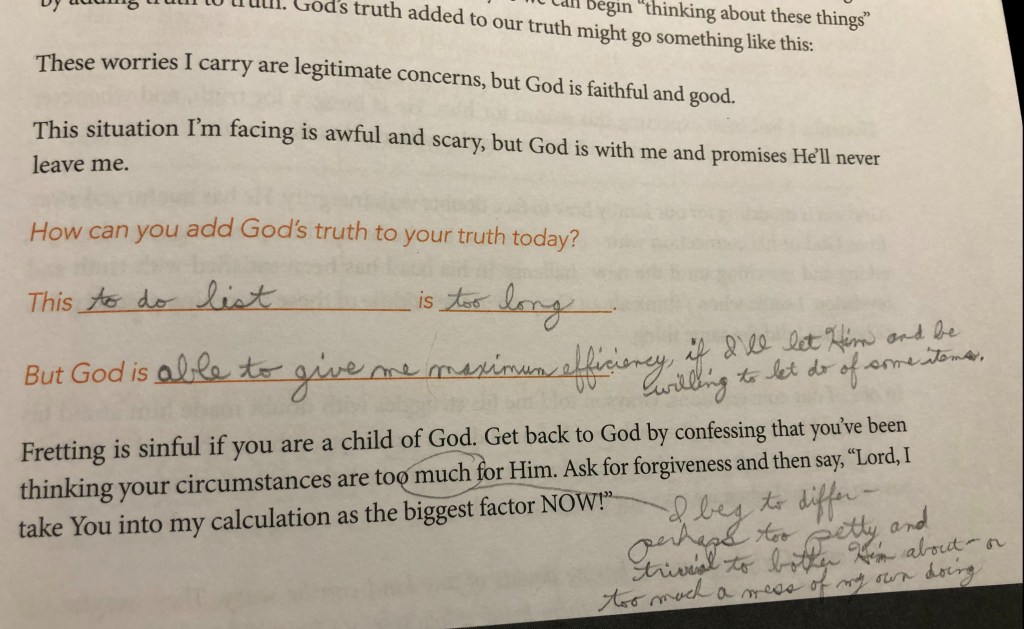 truth. God's truth added to our truth might go something like this:
can begin "thinking about these things"
These worries I carry are legitimate concerns, but God is faithful and good.
This situation I'm facing is awful and scary, but God is with me and promises He'll never
leave me.
How can you add God's truth to your truth today?
This to do list is too long.
But God is able to give me maximum efficiency, if I'll let Him and be
willing to let do of some items.
Fretting is sinful if you are a child of God. Get back to God by confessing that you've been
thinking your circumstances are too much for Him. Ask for forgiveness and then say, "Lord, I
take You into my calculation as the biggest factor NOW!"
I beg to differ -
perhaps too petty and
trivial to bother Him about - or
too much a mess of my own doing